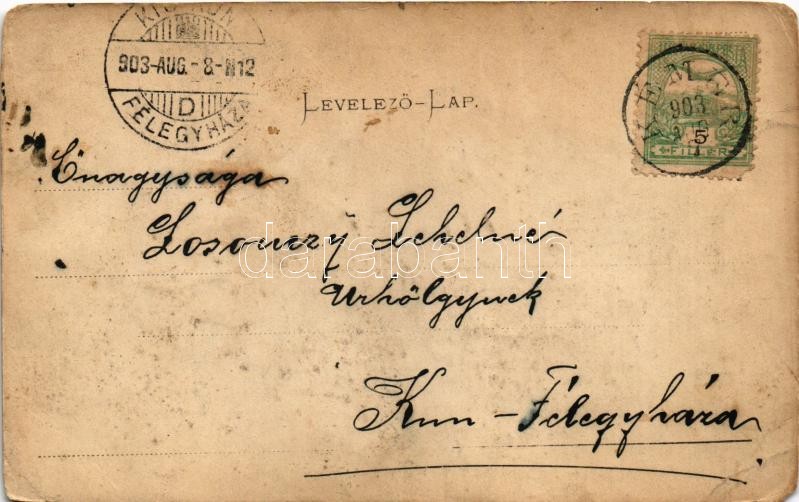 KISKUN
903-AUG.-8-N12
D
FÉLEGYHÁZA
LEVELEZŐ-LAP.
903
5
FILLÉR
Önagysága
Losonczy Lehelné
Urhölgynek
Kun-Félegyháza
darabanth